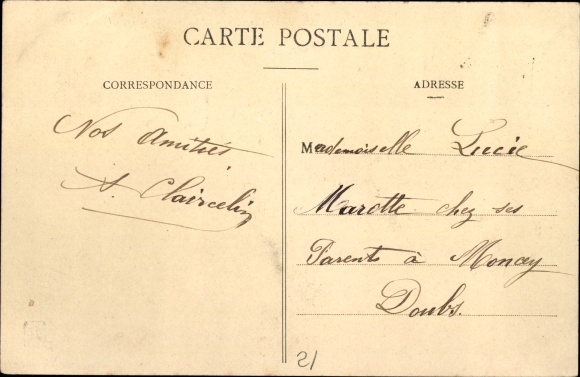 CARTE POSTALE
CORRESPONDANCE
ADRESSE
Nos Amitiés
A. Claircelin
Mademoiselle Lucie
Marotte chez ses
Parents à Moncey
Doubs.
21